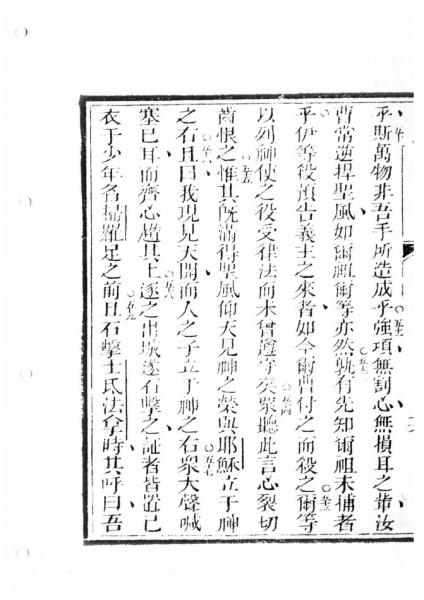 乎斯萬物非吾手所造成乎強項無割心無損耳之輩汝
曹常逆捍聖風如爾祖爾等亦然孰有先知爾祖未捕者
乎伊等役預告義主之來者如今爾曹付之而役之爾等
以列神使之役受律法而未曾遵守矣眾聽此言心裂切
齒恨之惟其既滿得聖風仰天見神之榮與耶穌立于神
之右且曰我現見天開而人之子立于神之右眾大聲喊
塞己耳而齊心趨其上逐之出城遂石擊之証者皆置己
衣于少年名掃羅足之前且石擊士氐法拿時其呼曰吾